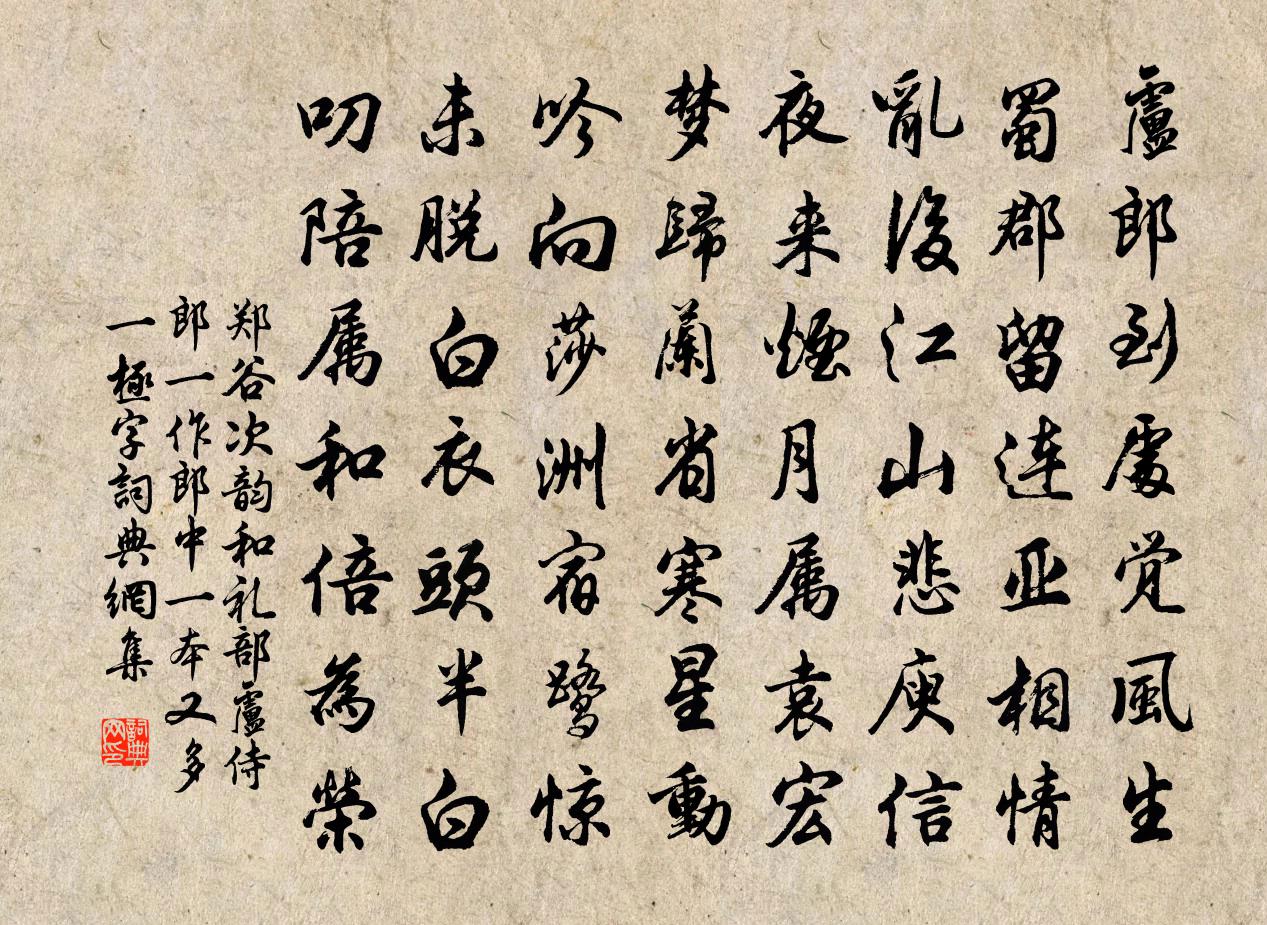 盧郎到處觉風生
蜀郡留连亚相情
亂後江山悲庾信
夜来煙月属袁宏
梦歸蘭省寒星動
吟向莎洲宿鹭惊
未脱白衣頭半白
叨陪属和倍為榮
郑谷次韵和礼部盧侍
郎一作郎中一本又多
一極字詞典網集
詞典
网印